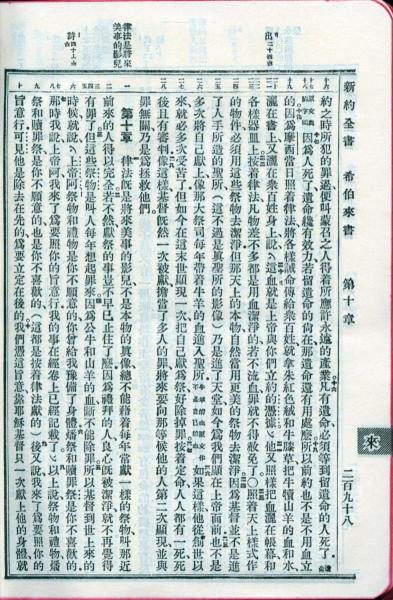 新約全書 希伯來書 第十章 二百九十八
來
約之時所犯的罪過便叫蒙召之人得着所應許永遠的產業凡有遺命必須等到留遺命的人死了
因爲人死了遺命纔有效力若留遺命的尙在那遺命還有用處麼所以前約也不是不用血立
的因爲摩西當日照着律法將各樣誡命傳給衆百姓就拿朱紅色絨和牛膝草把牛犢山羊的血和水
灑在書上又灑在衆百姓身上說這血就是上帝與你們立約的憑據他又照樣把血灑在帳幕和
各樣器皿上按着律法凡物差不多都是用血潔淨的若不流血罪就不得赦免了○照着天上樣式作
的物件必須用這些祭物去潔淨但那天上的本物自然當用更美的祭物去潔淨因爲基督並不是進
了人手所造的聖所(這不過是眞聖所的影像)乃是進了天堂如今爲我們顯在上帝面前也不是
多次將自己獻上像那大祭司每年帶着牛羊的血進入聖所牛羊的血原文作不是自己的血如果這樣他從創世以
來就必多次受苦了但如今在這末世顯現一次把自己獻爲祭好除掉罪按着定命人人都有一死死
後且有審判像這樣基督旣然一次被獻擔當了多人的罪將來要向那等候他的人第二次顯現並與
罪無關乃是爲拯救他們
律法是將來美事的影兒
第十章 律法旣是將來美事的影兒不是本物的眞像總不能藉着每年常獻一樣的祭物叫那近
前來的人得以完全若不然獻祭的事豈不早已止住了麼因爲禮拜的人良心旣被潔淨就不再覺得
有罪了但這些祭物是叫人每年想起罪來因爲公牛和山羊的血斷不能除罪所以基督到世上來的
時候就說上帝阿祭物和禮物是你不願意的你曾給我豫備了身體燔祭和贖罪祭是你不喜歡的
那時我說上帝阿我來了爲要照你的旨意行我的事在經卷上已經記載了以上說祭物和禮物燔
祭和贖罪祭是你不願意的也是你不喜歡的(這都是按着律法獻的)後又說我來了爲要照你的
旨意行可見他是除去在先的爲要立定在後的我們憑這旨意靠耶穌基督只一次獻上他的身體就